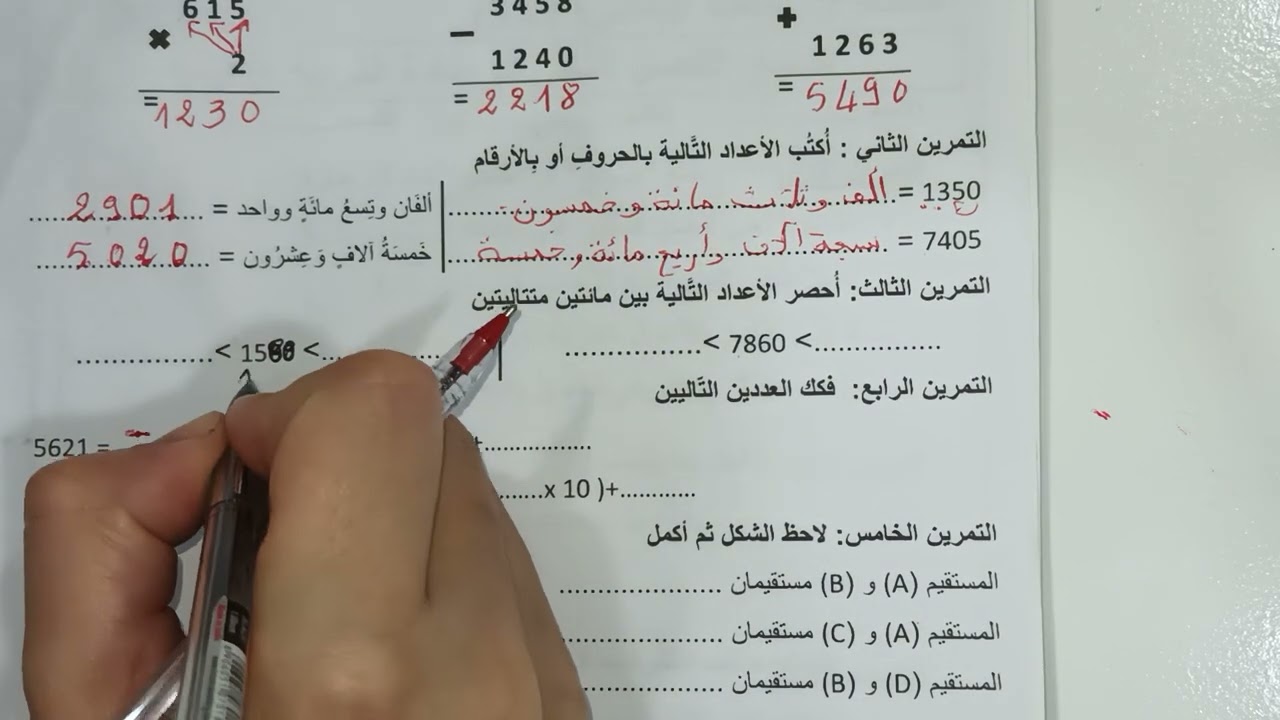 615
× 2
= 1230
3458
− 1240
= 2218
+ 1263
= 5490
التمرين الثاني : أُكتُب الأعداد التَّالية بالحروفِ أو بِالأرقام
1350 = ألف وثلاث مائة وخمسون
ألفَان وتِسعُ مائَةٍ وواحد = 2901
7405 = سبعة آلاف وأربع مائة وخمسة
خَمسَةُ آلافٍ وَعِشرُون = 5020
التمرين الثالث: أُحصر الأعداد التَّالية بين مائتين متتاليتين
................< 7860 <...............
................< 15 <................
التمرين الرابع: فكك العددين التَّاليين
5621 = +................
.......x 10 )+...........
التمرين الخامس: لاحظ الشكل ثم أكمل
المستقيم (A) و (B) مستقيمان ......................
المستقيم (A) و (C) مستقيمان ......................
المستقيم (D) و (B) مستقيمان ......................